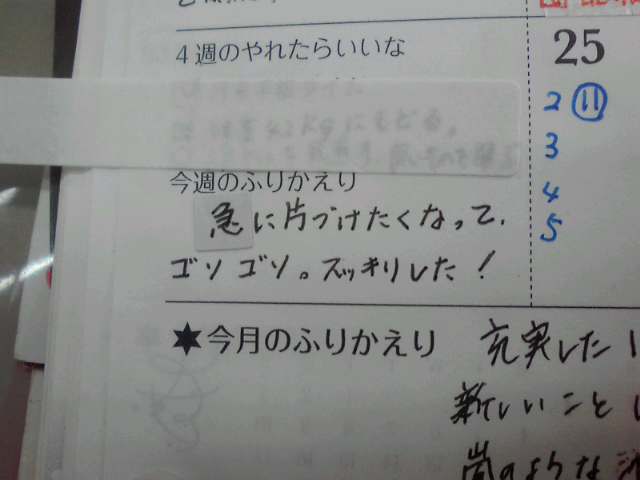 4週のやれたらいいな
25
2 ⑪
3
4
5
今週のふりかえり
急に片づけたくなって、
ゴソゴソ。スッキリした!
★今月のふりかえり 充実した1
新しいこと
嵐のような